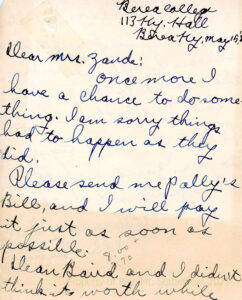 Berea College
113 Ky. Hall
Berea Ky, May 15,
Dear Mrs. Zande:
Once more I
have a chance to do some-
thing. I am sorry things
had to happen as they
did.
Please send me Pally's
Bill, and I will pay
it just as soon as
possible.
Dean Baird and I didn't
think it worth while